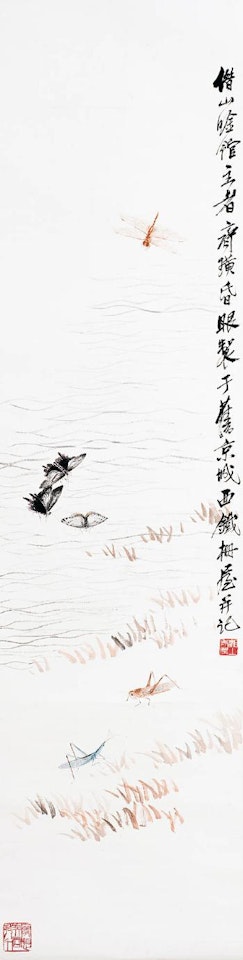 借山吟館主者齊璜昏眼製于舊京城西鐵柵屋并記